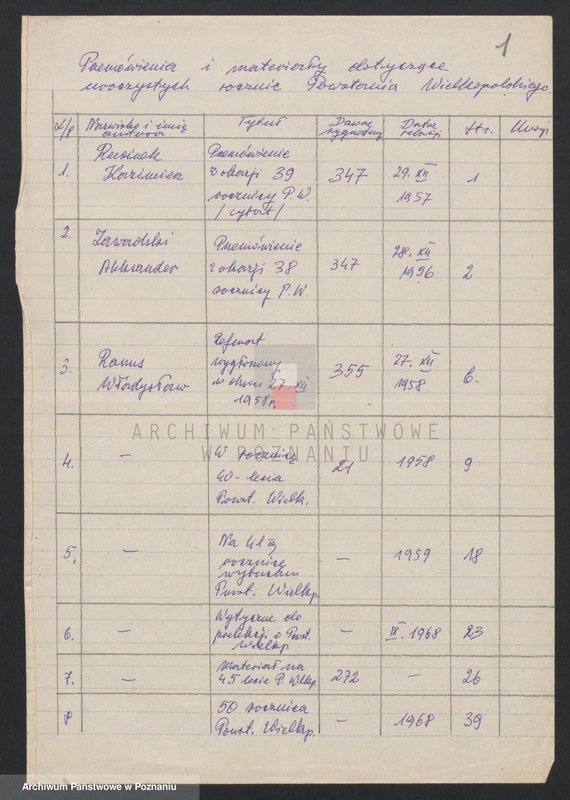 1
Przemówienia i materiały dotyczące
uroczystych rocznic Powstania Wielkopolskiego.
L/p Nazwisko i imię autora Tytuł Dawne sygnatury Data relacji Str. Uwagi
1. Kazimierz Przemówienie z okazji 39 rocznicy P.W. /cytat/ 347 29. XII 1957 1
2. Zawadzki Aleksander Przemówienie z okazji 38 rocznicy P.W. 347 28. XII 1956 2
3. Ranus Władysław Referat wygłoszony w dniu 27 XII 1958 r. 355 27. XII 1958 6.
4. — W rocznicę 40-lecia Powst. Wielk. 21 1958 9
5. — Na 41 rocznicę wybuchu Powst. Wielkp. — 1959 18
6. — Wytyczne do prelekcji o Powst. Wielkp. — IX. 1968 23
7. — Materiał na 45 lecie P. Wlkp. 272 — 26
8 50 rocznica Powst. Wielkp. — 1968 39
ARCHIWUM PAŃSTWOWE
W POZNANIU
Archiwum Państwowe w Poznaniu